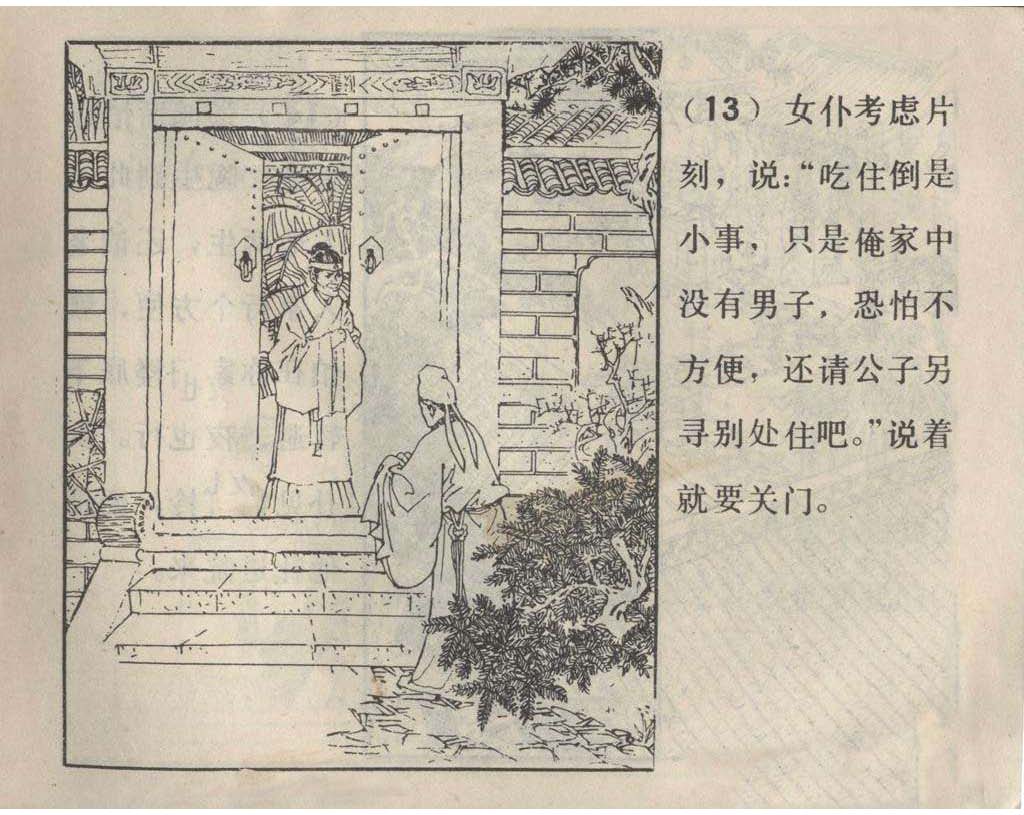 （13）女仆考虑片
刻，说：“吃住倒是
小事，只是俺家中
没有男子，恐怕不
方便，还请公子另
寻别处住吧。”说着
就要关门。